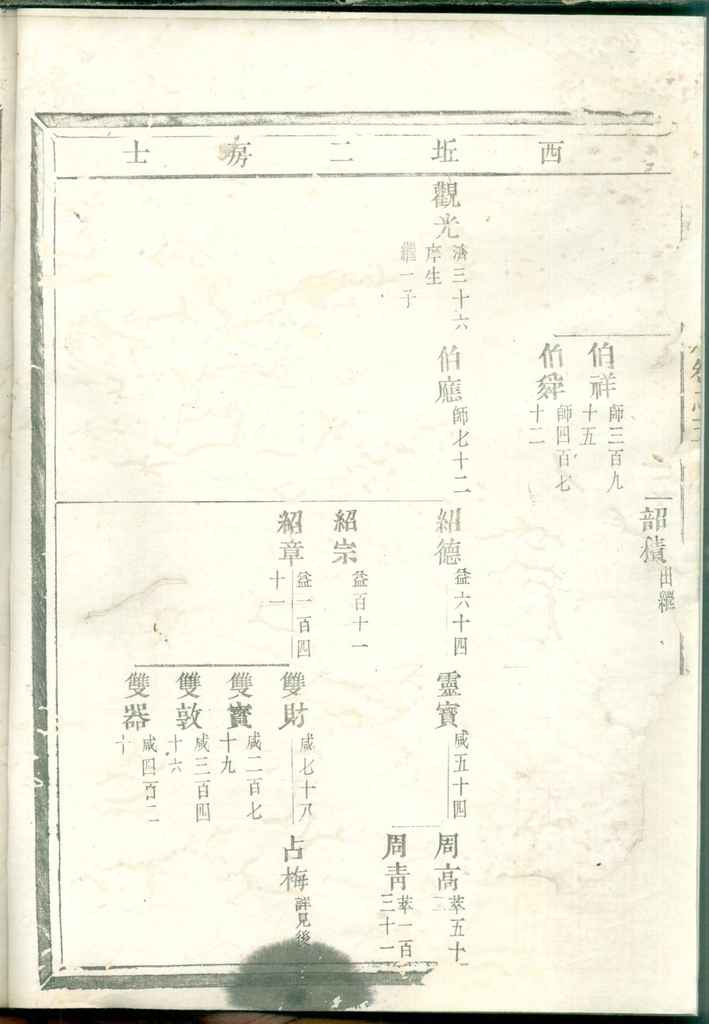 西坵二房士
韶積
出繼
伯祥
師三百九
十五
伯舜
師四百七
十二
觀光
濟三十六
庠生
繼一子
伯應
師七十二
紹德
益六十四
靈寶
咸五十四
周高
萃五十
二
周青
萃一百
三十一
紹宗
益百十一
紹章
益一百四
十一
雙財
咸七十八
占梅
詳見後
雙寳
咸二百七
十九
雙敦
咸三百四
十六
雙器
咸四百二
十